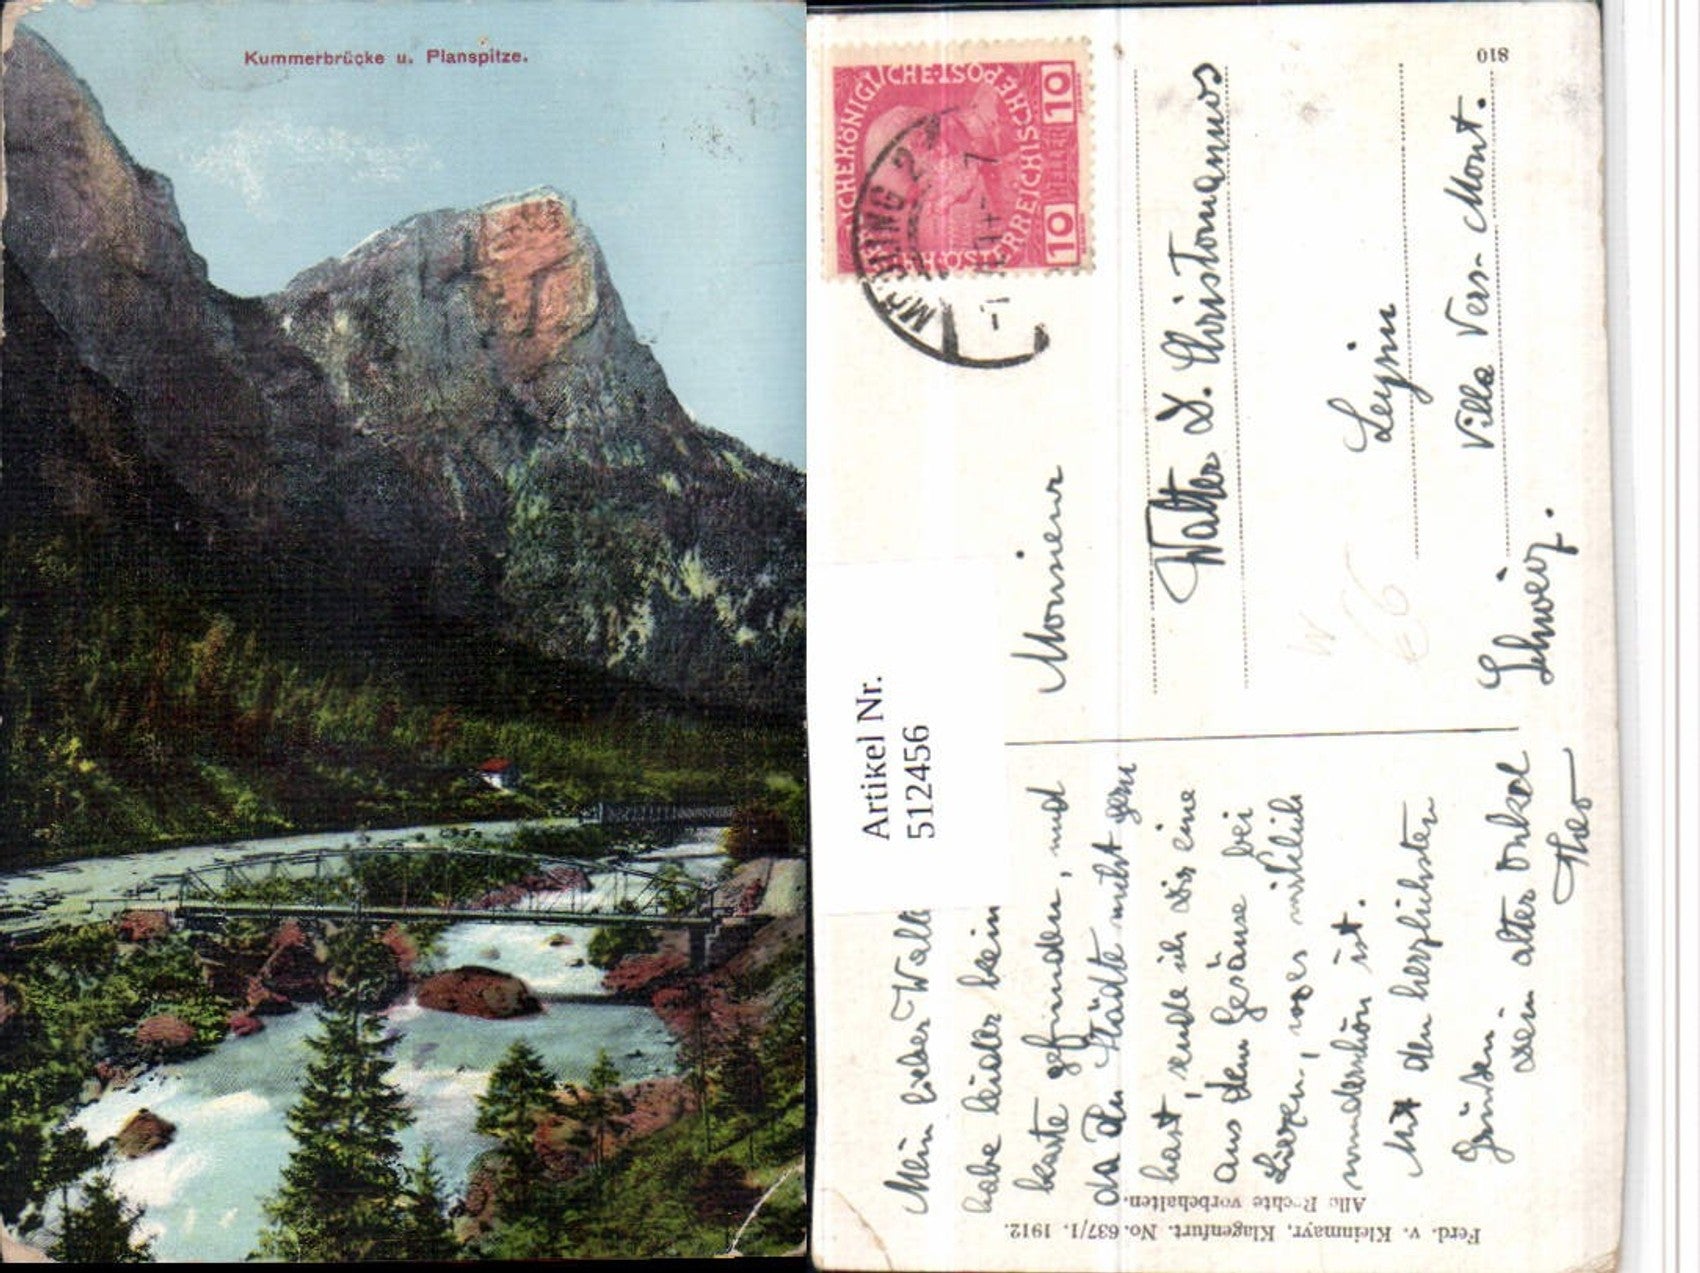 Kummerbrücke u. Planspitze.
810
ÖSTERREICHISCHE POST
10 HELLER 10
MÖDLING 2
Artikel Nr.
512456
Monsieur
Walter D. Christomannos
Leysin
Villa Vers-Mont.
Schweiz.
Mein lieber
habe leider kein
karte gefunden, und
da Du Städte nicht gern
hast, sende ich dir eine
aus dem Gesäuse bei
wo es wirklich
wunderschön ist.
Mit den herzlichsten
Grüssen
dein alter Onkel
Theo
Ferd. v. Kleinmayr, Klagenfurt. No. 637/1. 1912.
Alle Rechte vorbehalten.